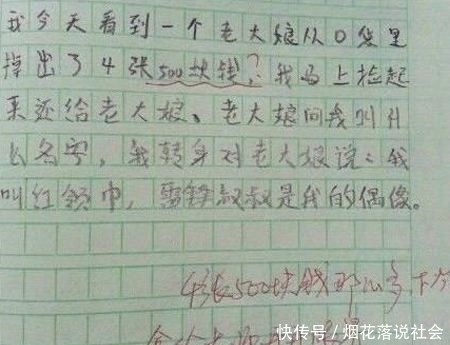 我今天看到一个老大娘从0袋里
掉出了4张500块钱，?我马上捡起
来还给老大娘、老大娘问我叫什
么名字，我转身对老大娘说：我
叫红领巾，雷锋叔叔是我的偶像。
4张500块钱那么多 下
快传号/烟花落说社会